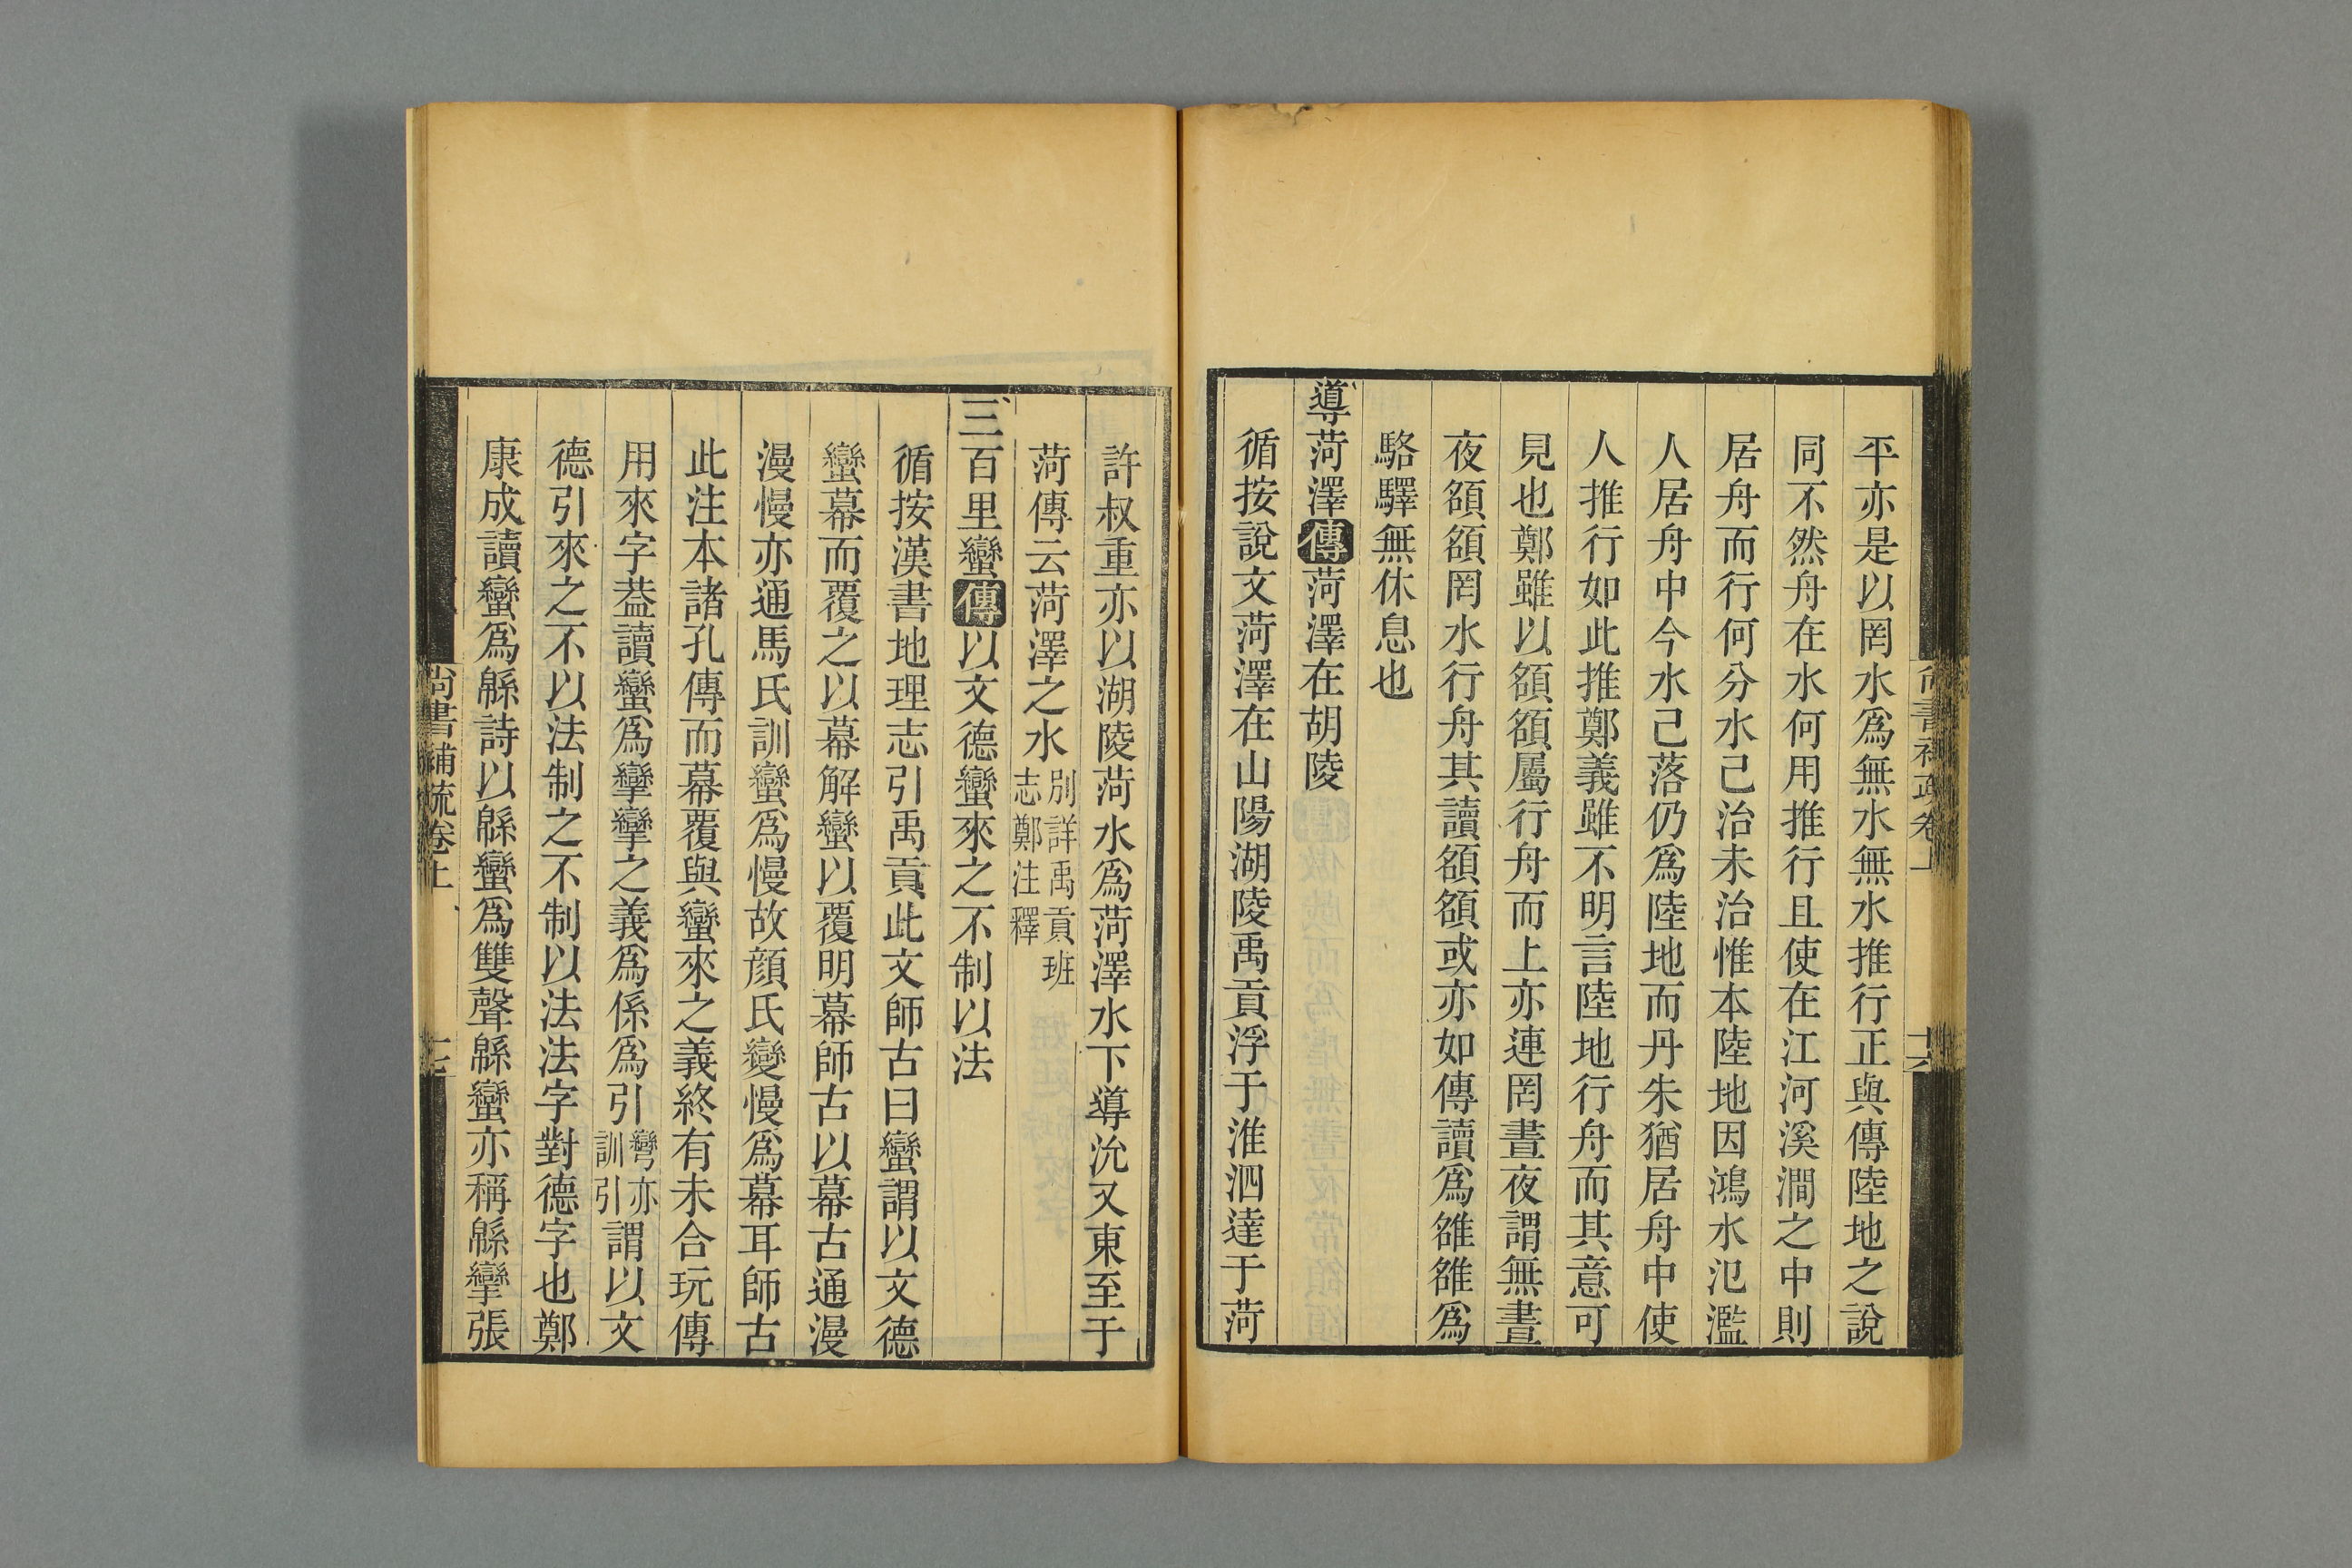 平亦是以罔水爲無水無水推行正與傳陸地之說
同不然舟在水何用推行且使在江河溪澗之中則
居舟而行何分水已治未治惟本陸地因鴻水氾濫
人居舟中今水已落仍爲陸地而丹朱猶居舟中使
人推行如此推鄭義雖不明言陸地行舟而其意可
見也鄭雖以頟頟屬行舟而上亦連罔晝夜謂無晝
夜頟頟罔水行舟其讀頟頟或亦如傳讀爲雒雒爲
駱驛無休息也
導菏澤傳菏澤在胡陵
循按說文菏澤在山陽湖陵禹貢浮于淮泗達于菏
尚書補疏卷上
十六
許叔重亦以湖陵菏水爲菏澤水下導沇又東至于
菏傳云菏澤之水別詳禹貢班志鄭注釋
三百里蠻傳以文德蠻來之不制以法
循按漢書地理志引禹貢此文師古曰蠻謂以文德
蠻幕而覆之以幕解蠻以覆明幕師古以幕古通漫
漫慢亦通馬氏訓蠻爲慢故顏氏變慢爲幕耳師古
此注本諸孔傳而幕覆與蠻來之義終有未合玩傳
用來字葢讀蠻爲攣攣之義爲係爲引彎亦訓引謂以文
德引來之不以法制之不制以法法字對德字也鄭
康成讀蠻爲緜詩以緜蠻爲雙聲緜蠻亦稱緜攣張
尚書補疏卷上
十七